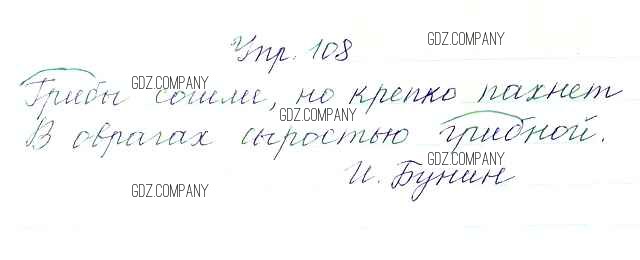 Упр. 108
GDZ.COMPANY
Грибы сошли, но крепко пахнет
GDZ.COMPANY
GDZ.COMPANY
В оврагах сыростью грибной.
GDZ.COMPANY
И. Бунин
GDZ.COMPANY